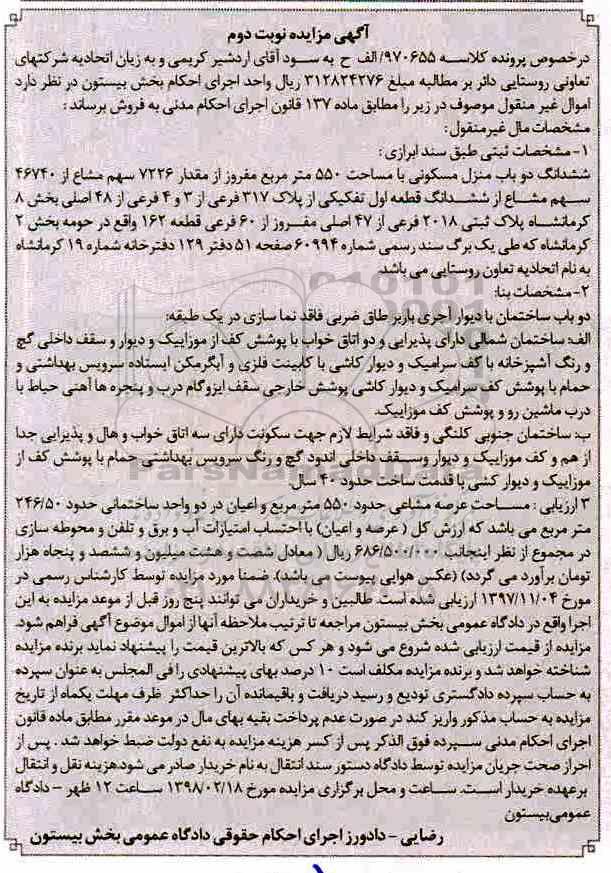 آگهی مزایده نوبت دوم
درخصوص پرونده کلاسه ۹۷۰۶۵۵/ الف ح به سود آقای اردشیر کریمی و به زیان اتحادیه شرکتهای
تعاونی روستایی دائر بر مطالبه مبلغ ۳۱۲۸۲۴۲۷۶ ریال واحد اجرای احکام بخش بیستون در نظر دارد
اموال غیر منقول موصوف در زیر را مطابق ماده ۱۳۷ قانون اجرای احکام مدنی به فروش برساند :
مشخصات مال غیرمنقول:
۱- مشخصات ثبتی طبق سند ابرازی:
ششدانگ دو باب منزل مسکونی با مساحت ۵۵۰ متر مربع مفروز از مقدار ۷۲۲۶ سهم مشاع از ۴۶۷۴۰
سهم مشاع از ششدانگ قطعه اول تفکیکی از پلاک ۳۱۷ فرعی از ۳ و ۴ فرعی از ۴۸ اصلی بخش ۸
کرمانشاه پلاک ثبتی ۲۰۱۸ فرعی از ۴۷ اصلی مفروز از ۶۰ فرعی قطعه ۱۶۲ واقع در حومه بخش ۲
کرمانشاه که طی یک برگ سند رسمی شماره ۶۰۹۹۴ صفحه ۵۱ دفتر ۱۲۹ دفترخانه شماره ۱۹ کرمانشاه
به نام اتحادیه تعاون روستایی می باشد.
۲- مشخصات بنا:
دو باب ساختمان با دیوار آجری باربر طاق ضربی فاقد نما سازی در یک طبقه:
الف: ساختمان شمالی دارای پذیرایی و دو اتاق خواب با پوشش کف از موزاییک و دیوار و سقف داخلی گچ
و رنگ آشپزخانه با کف سرامیک و دیوار کاشی با کابینت فلزی و آبگرمکن ایستاده سرویس بهداشتی و
حمام با پوشش کف سرامیک و دیوار کاشی پوشش خارجی سقف ایزوگام درب و پنجره ها آهنی حیاط با
درب ماشین رو و پوشش کف موزاییک.
ب: ساختمان جنوبی کلنگی و فاقد شرایط لازم جهت سکونت دارای سه اتاق خواب و هال و پذیرایی جدا
از هم و کف موزاییک و دیوار وسقف داخلی اندود گچ و رنگ سرویس بهداشتی حمام با پوشش کف از
موزاییک و دیوار کشی با قدمت ساخت حدود ۴۰ سال.
۳ ارزیابی : مساحت عرصه مشاعی حدود ۵۵۰ متر مربع و اعیان در دو واحد ساختمانی حدود ۲۴۶/۵۰
متر مربع می باشد که ارزش کل ( عرصه و اعیان) با احتساب امتیازات آب و برق و تلفن و محوطه سازی
در مجموع از نظر اینجانب ۶۸۶/۵۰۰/۰۰۰ ریال ( معادل شصت و هشت میلیون و ششصد و پنجاه هزار
تومان برآورد می گردد) (عکس هوایی پیوست می باشد). ضمنا مورد مزایده توسط کارشناس رسمی در
مورخ ۱۳۹۷/۱۱/۰۴ ارزیابی شده است. طالبین و خریداران می توانند پنج روز قبل از موعد مزایده به این
اجرا واقع در دادگاه عمومی بخش بیستون مراجعه تا ترتیب ملاحظه آنها از اموال موضوع آگهی فراهم شود.
مزایده از قیمت ارزیابی شده شروع می شود و هر کس که بالاترین قیمت را پیشنهاد نماید برنده مزایده
شناخته خواهد شد و برنده مزایده مکلف است ۱۰ درصد بهای پیشنهادی را فی المجلس به عنوان سپرده
به حساب سپرده دادگستری تودیع و رسید دریافت و باقیمانده آن را حداکثر ظرف مهلت یکماه از تاریخ
مزایده به حساب مذکور واریز کند در صورت عدم پرداخت بقیه بهای مال در موعد مقرر مطابق ماده قانون
اجرای احکام مدنی سپرده فوق الذکر پس از کسر هزینه مزایده به نفع دولت ضبط خواهد شد . پس از
احراز صحت جریان مزایده توسط دادگاه دستور سند انتقال به نام خریدار صادر می شود.هزینه نقل و انتقال
برعهده خریدار است. ساعت و محل برگزاری مزایده مورخ ۱۳۹۸/۰۲/۱۸ ساعت ۱۲ ظهر - دادگاه
عمومی‌بیستون
رضایی - دادورز اجرای احکام حقوقی دادگاه عمومی بخش بیستون
ParsNamadData